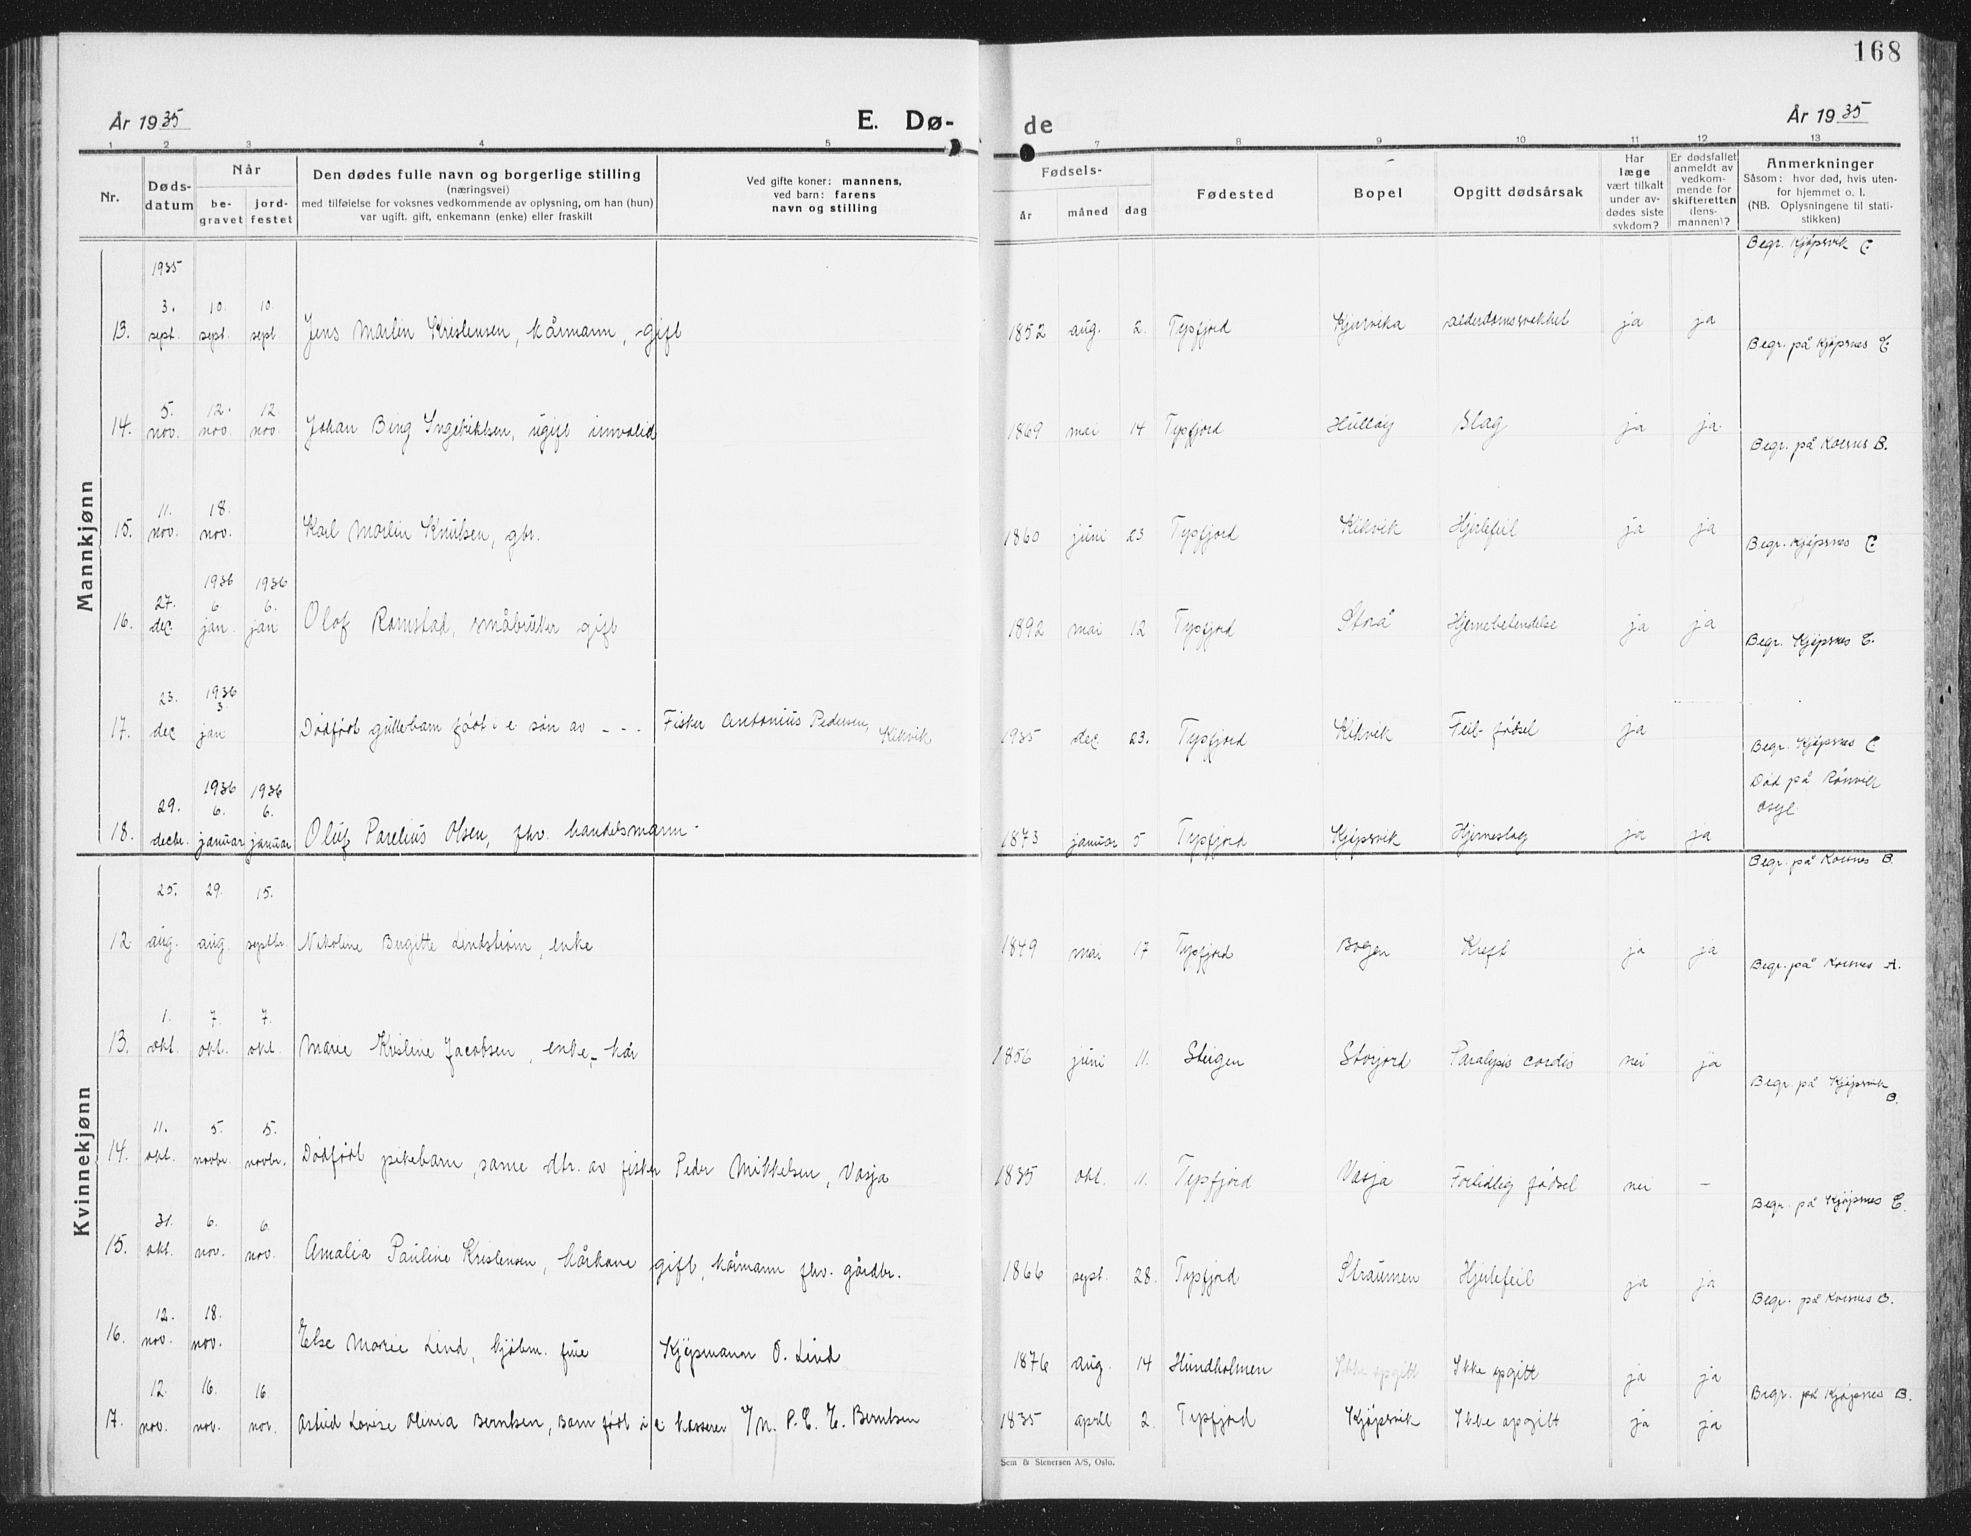 168
År 1935
E. Dø-
de
År 1935
1 2 3 4 5 7 8 9 10 11 12 13
Nr.
Døds-
datum
Når
be-
gravet
jord-
festet
Den dødes fulle navn og borgerlige stilling
(næringsvei)
med tilføielse for voksnes vedkommende av oplysning, om han (hun)
var ugift, gift, enkemann (enke) eller fraskilt
Ved gifte koner: mannens,
ved barn: farens
navn og stilling
Fødsels-
år måned dag
Fødested
Bopel
Opgitt dødsårsak
Har
læge
vært tilkalt
under av-
dødes siste
sykdom?
Er dødsfallet
anmeldt av
vedkom-
mende for
skifteretten
(lens-
mannen)?
Anmerkninger
Såsom: hvor død, hvis uten-
for hjemmet o. l.
(NB. Oplysningene til stati-
stikken)
Mannkjønn
1935
Begr. Kjøpsvik C
3. 10. 10.
13. sept. sept. sept. Jens Martin Kristensen, kårmann, gift 1852 aug. 2. Tysfjord alderdomssvekket ja ja
Begr. på Kjøpsnes C
5. 12. 12.
14. nov. nov. nov. Johan Bing Ingebriktsen, ugift invalid 1869 mai 14 Tysfjord Hulløy Slag ja ja
Begr. på Korsnes B.
11. 18.
15. nov. nov. Karl Martin Knutsen, gbr. 1860 juni 23 Tysfjord Kikvik Hjertefeil ja ja
Begr. Kjøpsnes C
1936 1936
27. 6. 6.
16. dec jan. jan Olof Ramstad, småbruker gift 1892 mai 12 Tysfjord Storå Hjernebetendelse ja ja
Begr. Kjøpsnes C.
23. 1936 3.
17. dec jan Dødfødt guttebarn født i e søn av - - - Fisker Antonius Pedersen, Kikvik 1935 dec 23. Tysfjord Kikvik Feil-fødsel ja
Begr. Kjøpsnes C
Død på Rønvik
asyl
1936 1936
29. 6. 6.
18. decbr. januar januar Oluf Parelius Olsen, fhv. handelsmann - 1873 januar 5 Tysfjord Kjøpsvik Hjerneslag ja ja
Kvinnekjønn
Begr. på Korsnes B.
25. 29. 15.
12 aug. aug. septbr. Nikoline Birgitte Lindstrøm, enke 1849 mai 17 Tysfjord Bogen Kreft ja ja
Begr. på Korsnes A.
1. 7. 7.
13. okt. okt. okt. Marie Kristine Jacobsen, enke, kår 1856 juni 11. Steigen Storjord Paralysis cordis nei ja
Begr på Kjøpsvik
B.
11. 5. 5.
14. okt. novbr. novbr. Dødfødt pikebarn, same dtr. av fisker Peder Mikkelsen, Vasja 1835 okt. 11. Tysfjord Vasja Fortidlig fødsel nei -
Begr. på Kjøpsnes C.
31. 6. 6.
15. okt. nov. nov. Amalia Pauline Kristensen, kårkone gift, kårmann fhv. gårdbr. 1866 sept. 28. Tysfjord Straumen Hjertefeil ja ja
Begr. på Korsnes B.
12. 18.
16. nov. nov. Else Marie Lind, kjøbm. frue Kjøpmann O. Lind 1876 aug. 14 Hundholmen Ikke opgitt Ikke opgitt ja ja
Begr. på Kjøpsnes B.
12. 16. 16
17. nov. nov. nov. Astrid Lovise Olivia Berntsen, Barn født i e kasserer P. E. C. Berntsen 1835 april 2. Tysfjord Kjøpsvik Ikke opgitt ja ja
Sem & Stenersen A/S, Oslo.